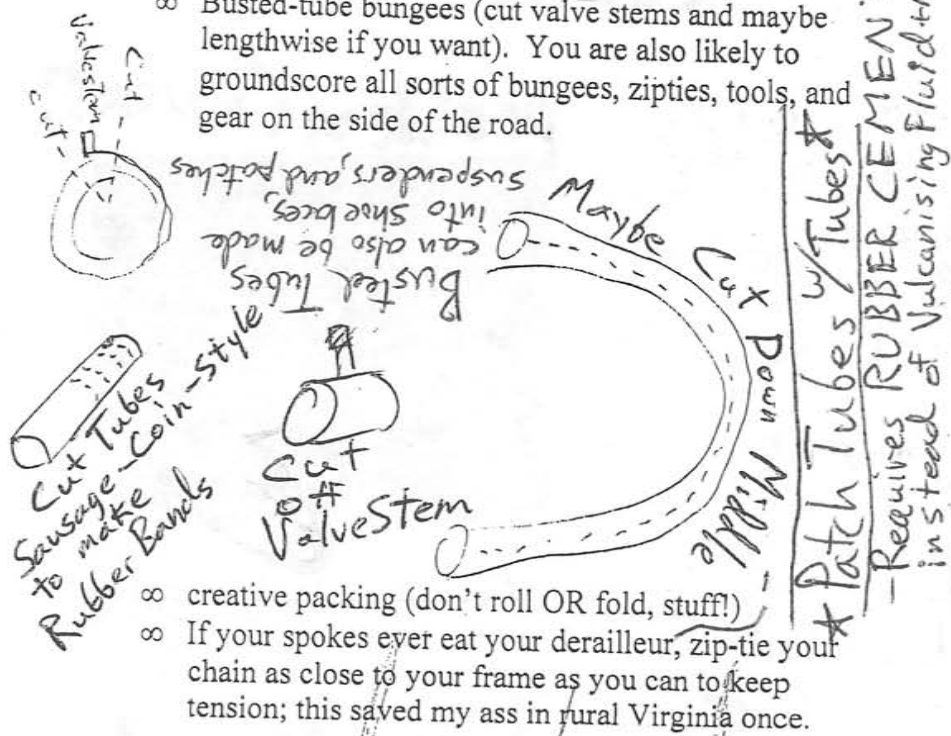 ∞ Busted-tube bungees (cut valve stems and maybe
lengthwise if you want). You are also likely to
groundscore all sorts of bungees, zipties, tools, and
gear on the side of the road.
valvestem
cut
cut
Busted Tubes
can also be made
into shoe laces,
suspenders, and patches
Maybe Cut Down Middle
Cut Tubes
Sausage-Coin-Style
to make
Rubber Bands
Cut
off
Valve Stem
★ Patch Tubes w/Tubes ★
- Requires RUBBER CEMEN
instead of Vulcanising Fluid
∞ creative packing (don't roll OR fold, stuff!)
∞ If your spokes ever eat your derailleur, zip-tie your
chain as close to your frame as you can to keep
tension; this saved my ass in rural Virginia once.